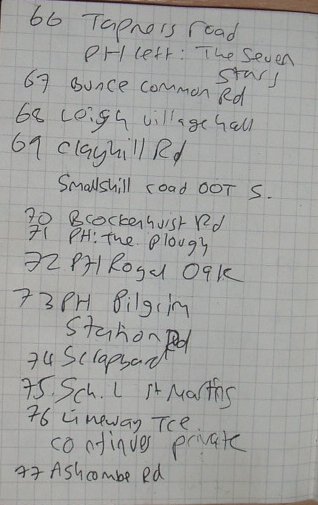 66 Tapners road
PH left: The Seven
Stars
67 Bunce common Rd
68 Leigh village hall
69 Clayhill Rd
Smallshill road OOT S.
70 Brockenhurst Rd
71 PH: the Plough
72 PH Royal Oak
73 PH Pilgrim
Station Rd
74 Scrapyard
75. Sch. L St Martins
76 Limeway Tce
continues private
77 Ashcombe Rd